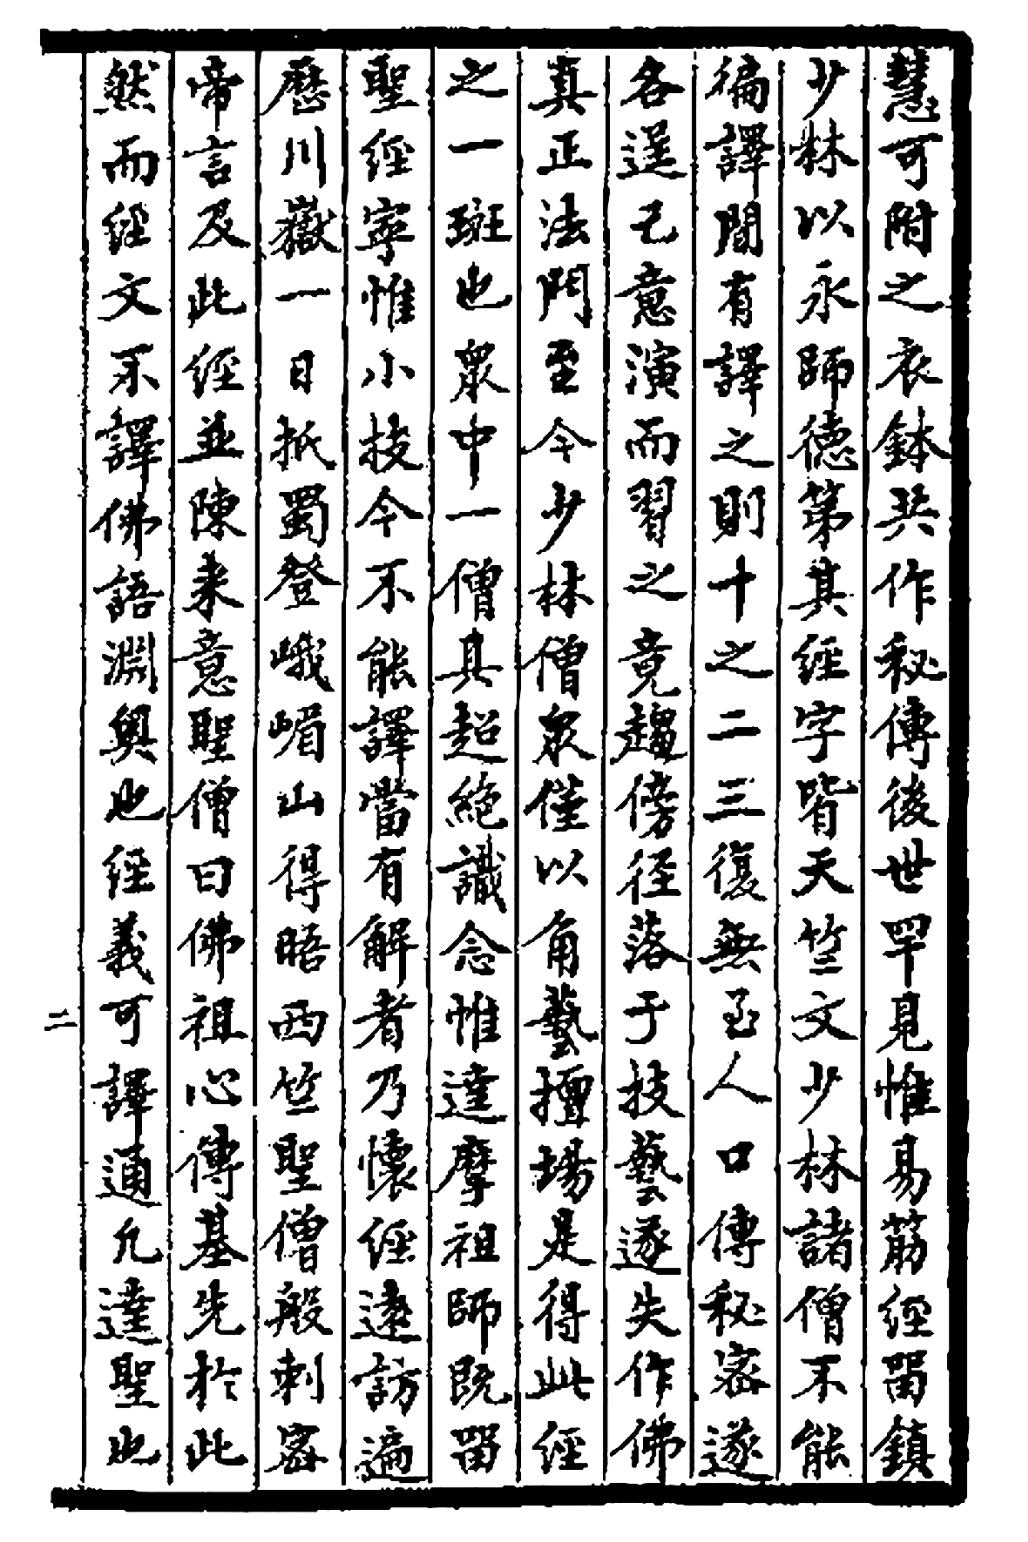 慧可附之衣鉢共作秘傳後世罕見惟易筋經畱鎮
少林以永師德第其經字皆天竺文少林諸僧不能
徧譯間有譯之則十之二三復無至人口傳秘密遂
各逞己意演而習之竟趨傍徑落于技藝遂失作佛
真正法門至今少林僧眾僅以角藝擅場是得此經
之一斑也眾中一僧具超絶識念惟達摩祖師既畱
聖經寧惟小技今不能譯當有解者乃懷經遠訪遍
歷川嶽一日抵蜀登峨嵋山得晤西竺聖僧般剌密
帝言及此經並陳来意聖僧曰佛祖心傳基先於此
然而經文不譯佛語淵奧也經義可譯通凢達聖也
二